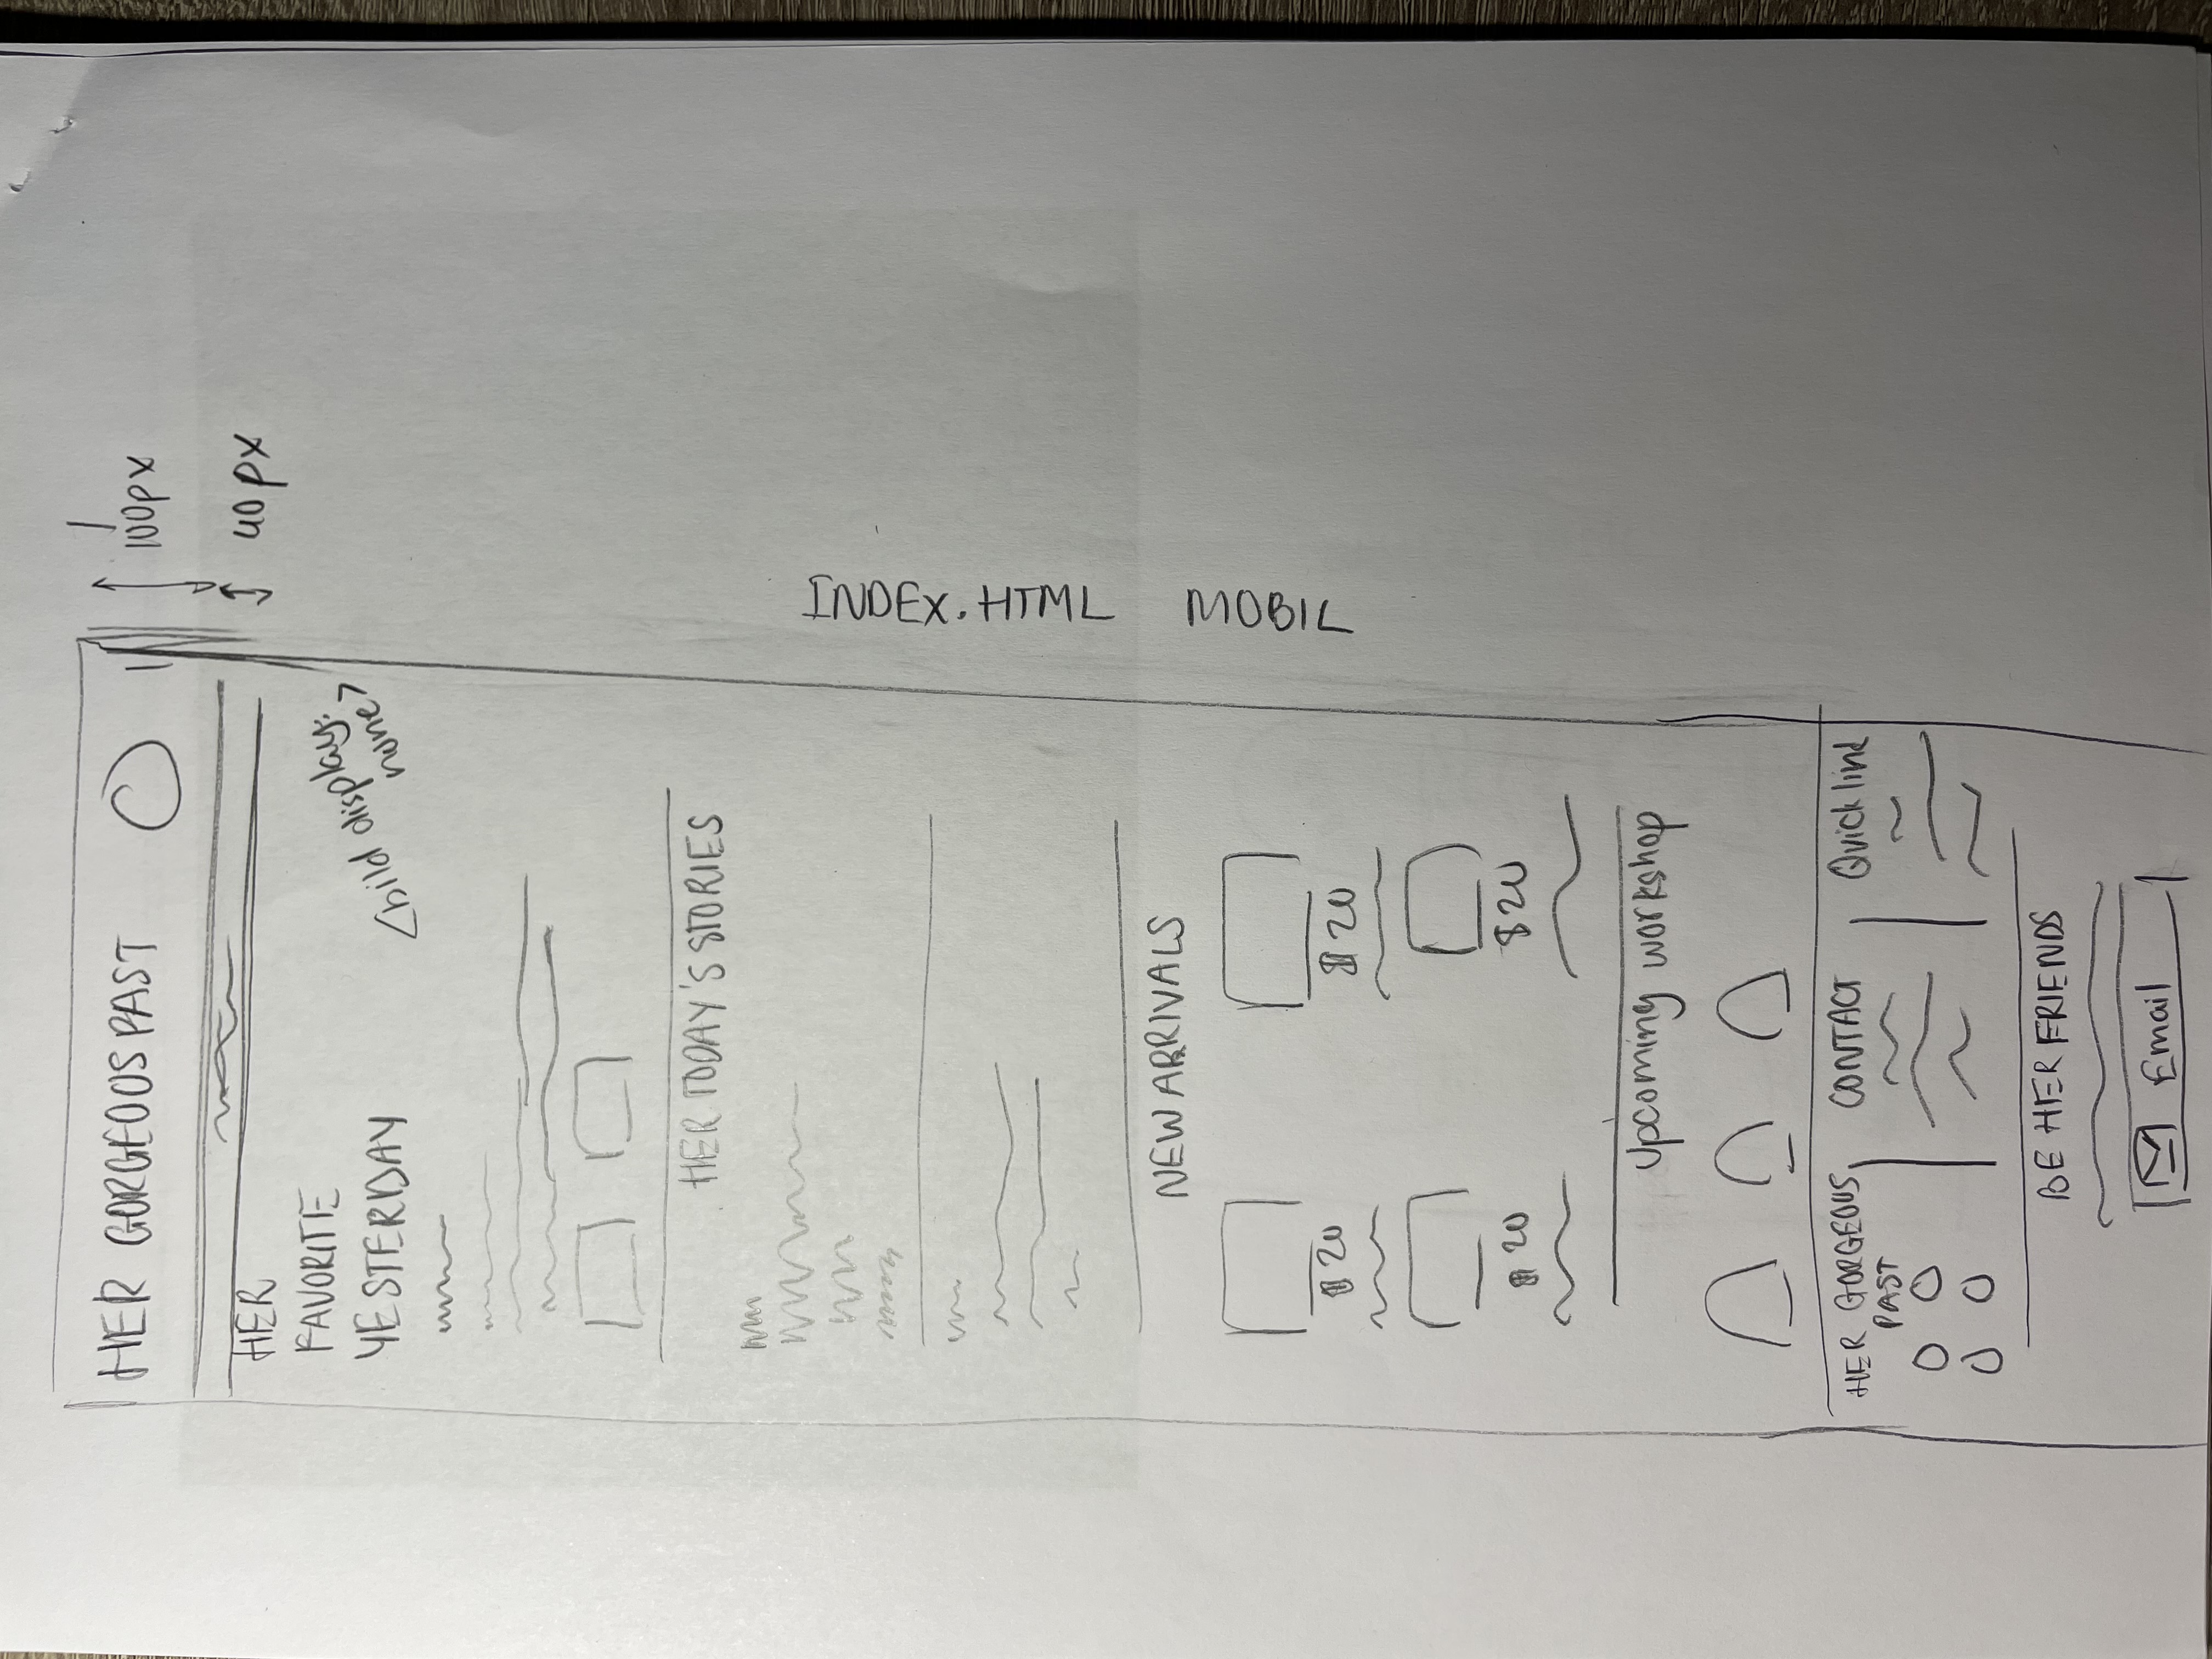 HER GORGEOUS PAST
100px
40px
HER
FAVORITE
YESTERDAY
<bild display:
none>
HER TODAY'S STORIES
INDEX.HTML MOBIL
NEW ARRIVALS
$20 $20
$20 $20
Upcoming workshop
HER GORGEOUS
PAST
CONTACT
Quick link
BE HER FRIENDS
Email